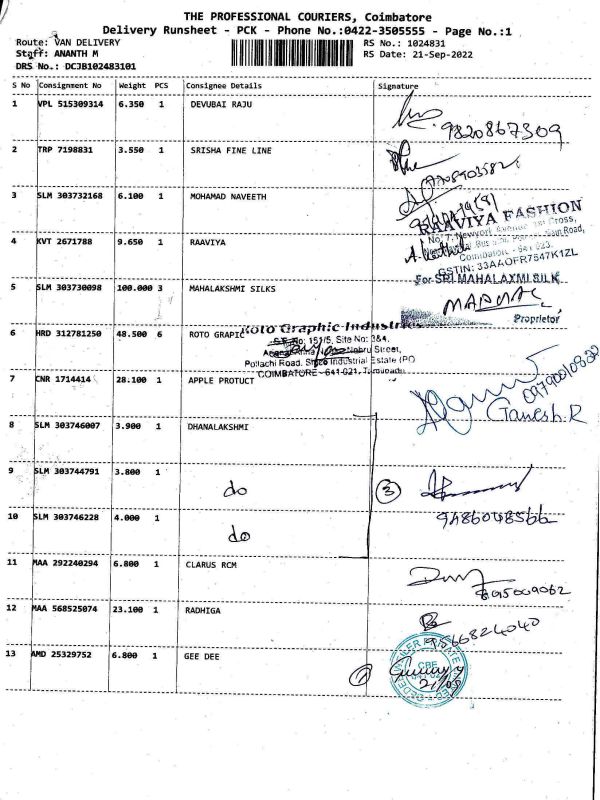 THE PROFESSIONAL COURIERS, Coimbatore
Delivery Runsheet - PCK - Phone No.:0422-3505555 - Page No.:1
Route: VAN DELIVERY RS No.: 1024831
Staff: ANANTH M RS Date: 21-Sep-2022
DRS No.: DCJB102483101
S No Consignment No Weight PCS Consignee Details Signature
1 VPL 515309314 6.350 1 DEVUBAI RAJU
9820867309
2 TRP 7198831 3.550 1 SRISHA FINE LINE
3 SLM 303732168 6.100 1 MOHAMAD NAVEETH
RAAVIYA FASHION
4 KVT 2671788 9.650 1 RAAVIYA
Coimbatore - 641 023.
GSTIN: 33AAOFR7547K1ZL
5 SLM 303730098 100.000 3 MAHALAKSHMI SILKS
For SRI MAHALAXMI SILK
Proprietor
6 HRD 312781250 48.500 6 ROTO GRAPIC
Roto Graphic Industries
151/5, Site No: 3&4,
Nehru Street,
Pollachi Road, Sidco Industrial Estate (PO
COIMBATORE - 641 021,
7 CNR 1714414 28.100 1 APPLE PROTUCT
Ganesh.R
8 SLM 303746007 3.900 1 DHANALAKSHMI
9 SLM 303744791 3.800 1 do 3
10 SLM 303746228 4.000 1 do
9486048566
11 MAA 292240294 6.800 1 CLARUS RCM
12 MAA 568525074 23.100 1 RADHIGA
13 AMD 25329752 6.800 1 GEE DEE
CBE